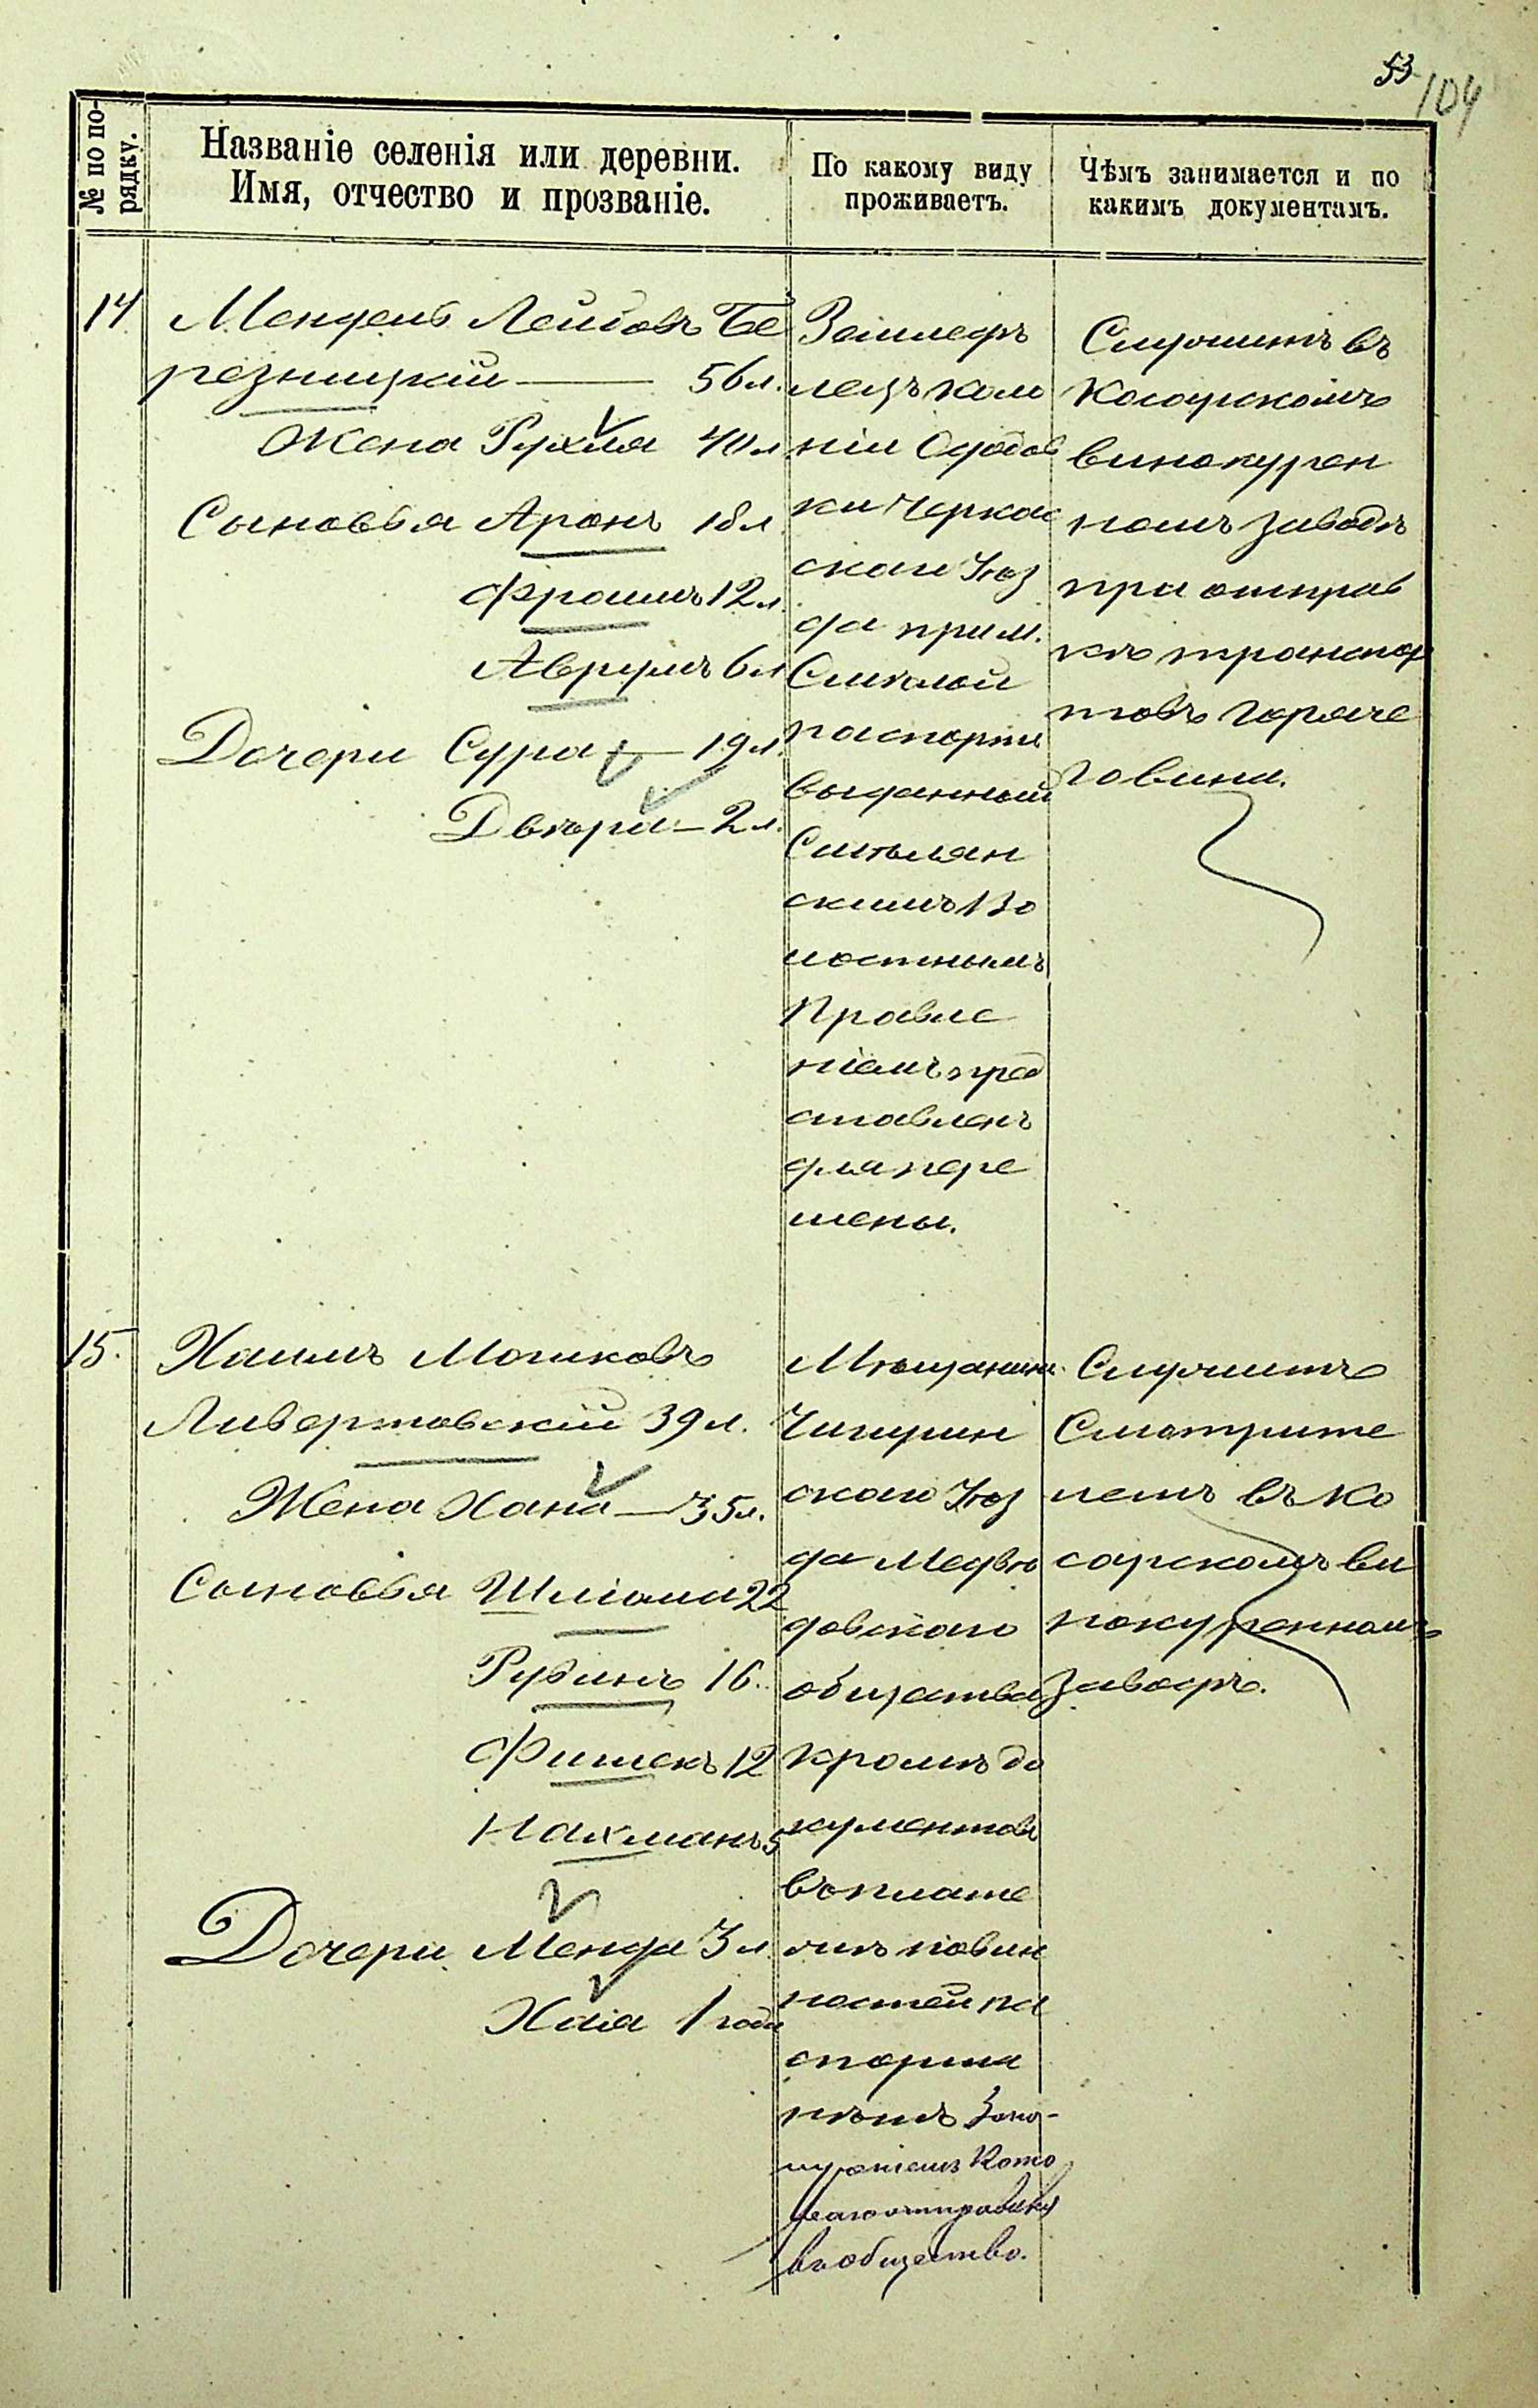 53
104
№ по по-
рядку.
Названіе селенія или деревни.
Имя, отчество и прозваніе.
По какому виду
проживаетъ.
Чѣмъ занимается и по
какимъ документамъ.
14
Мендель Лейбовъ Бе
резницкій — 56 л.
Жена Рухля 40 л
Сыновья Аронъ 18 л
Фроимъ 12 л.
Аврумъ 6 л
Дочери Сура — 19 л.
Двойра — 2 л.
Земледѣ
лецъ коло
ніи
ки Черкас
скаго Уѣз
да при м.
Смѣлой
паспортъ
выданный
Смѣлян
скимъ Во
лостнымъ
Правле
ніемъ пред
ставленъ
для пере
мены.
Служитъ въ
Косарскомъ
винокурен
номъ заводѣ
при отправ
кѣ транспор
товъ горяче
го вина.
15.
Хаимъ Мошковъ
Ливертовскій 39 л.
Жена Хана — 35 л.
Сыновья Шліома 22
Рувинъ 16.
Фишекъ 12
Нахманъ 5
Дочери Менда 3 л.
Хаія 1 годъ
Мѣщанинъ
Чигирин
скаго Уѣз
да Медвѣ
довскаго
общества
кромѣ до
кументовъ
въ плате
жѣ повин
ностей па
спорта
нѣтъ За по-
лученіемъ кото
раго отправился
въ общество.
Служитъ
Смотрите
лемъ въ Ко
сарскомъ ви
нокуренномъ
заводѣ.